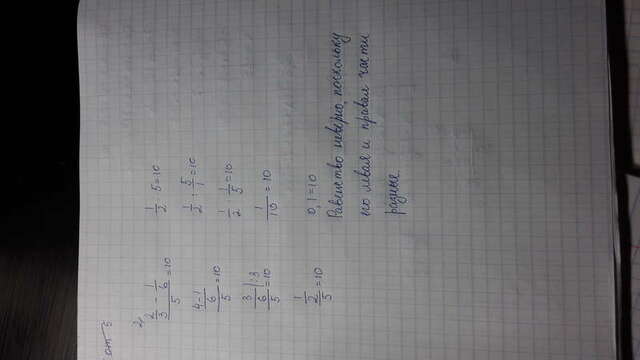 от 5
2.
(2/3 - 1/6)/5 = 10
((4-1)/6)/5 = 10
(3/6)/5 |:3 = 10
(1/2)/5 = 10
1/2 : 5 = 10
1/2 : 5/1 = 10
1/2 · 1/5 = 10
1/10 = 10
0,1 = 10
Равенство неверно, поскольку
его левая и правая части
разные.